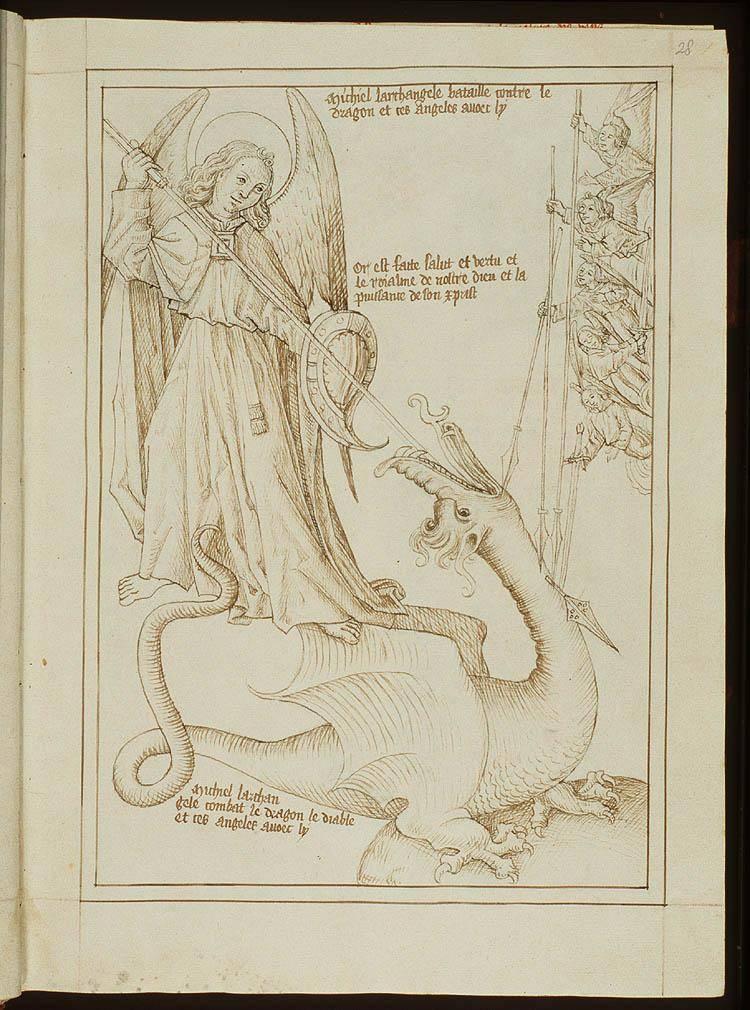 28
Michiel larchangele bataille contre le
dragon et ces Angeles avoec ly
Or est faite salut et vertu et
le roialme de nostre dieu et la
puissance de son xpist
Michiel larchan
gele combat le dragon le diable
et ces angeles avoec ly